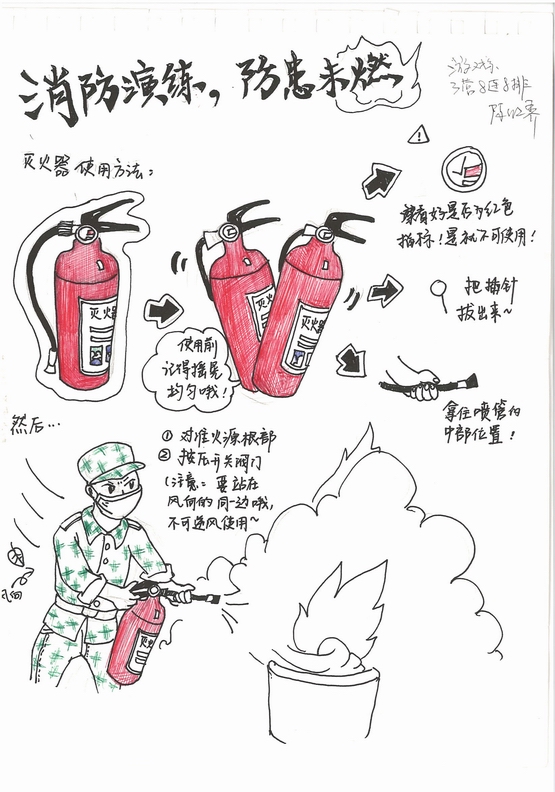 消防演练，防患未燃
游戏乐
3营8连8排
灭火器 使用方法：
察看好是否为红色
指标！是就不可使用！
把插针
拔出来~
灭火器
灭火器
灭火器
使用前
记得摇晃
均匀哦！
拿住喷管的
中部位置！
然后...
① 对准火源根部
② 按压开关阀门
（注意：要站在
风向的同一边哦，
不可逆风使用~
风向
灭火